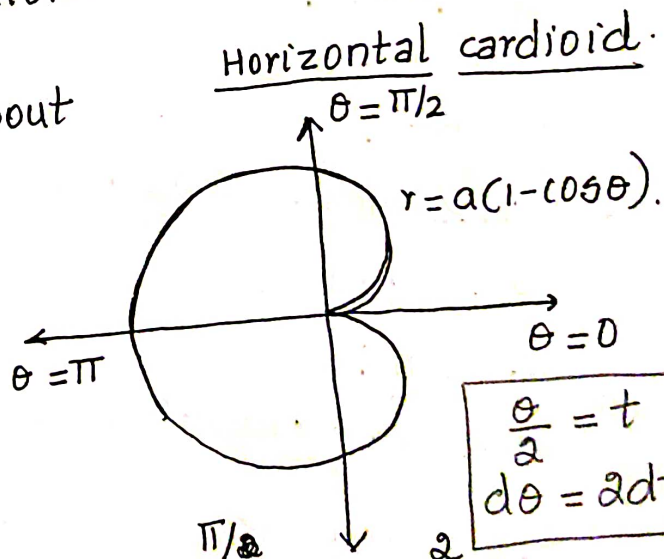 Horizontal cardioid.
out
θ = π/2
r = a(1-cosθ).
θ = 0
θ = π
θ/2 = t
dθ = 2d
π/2
2